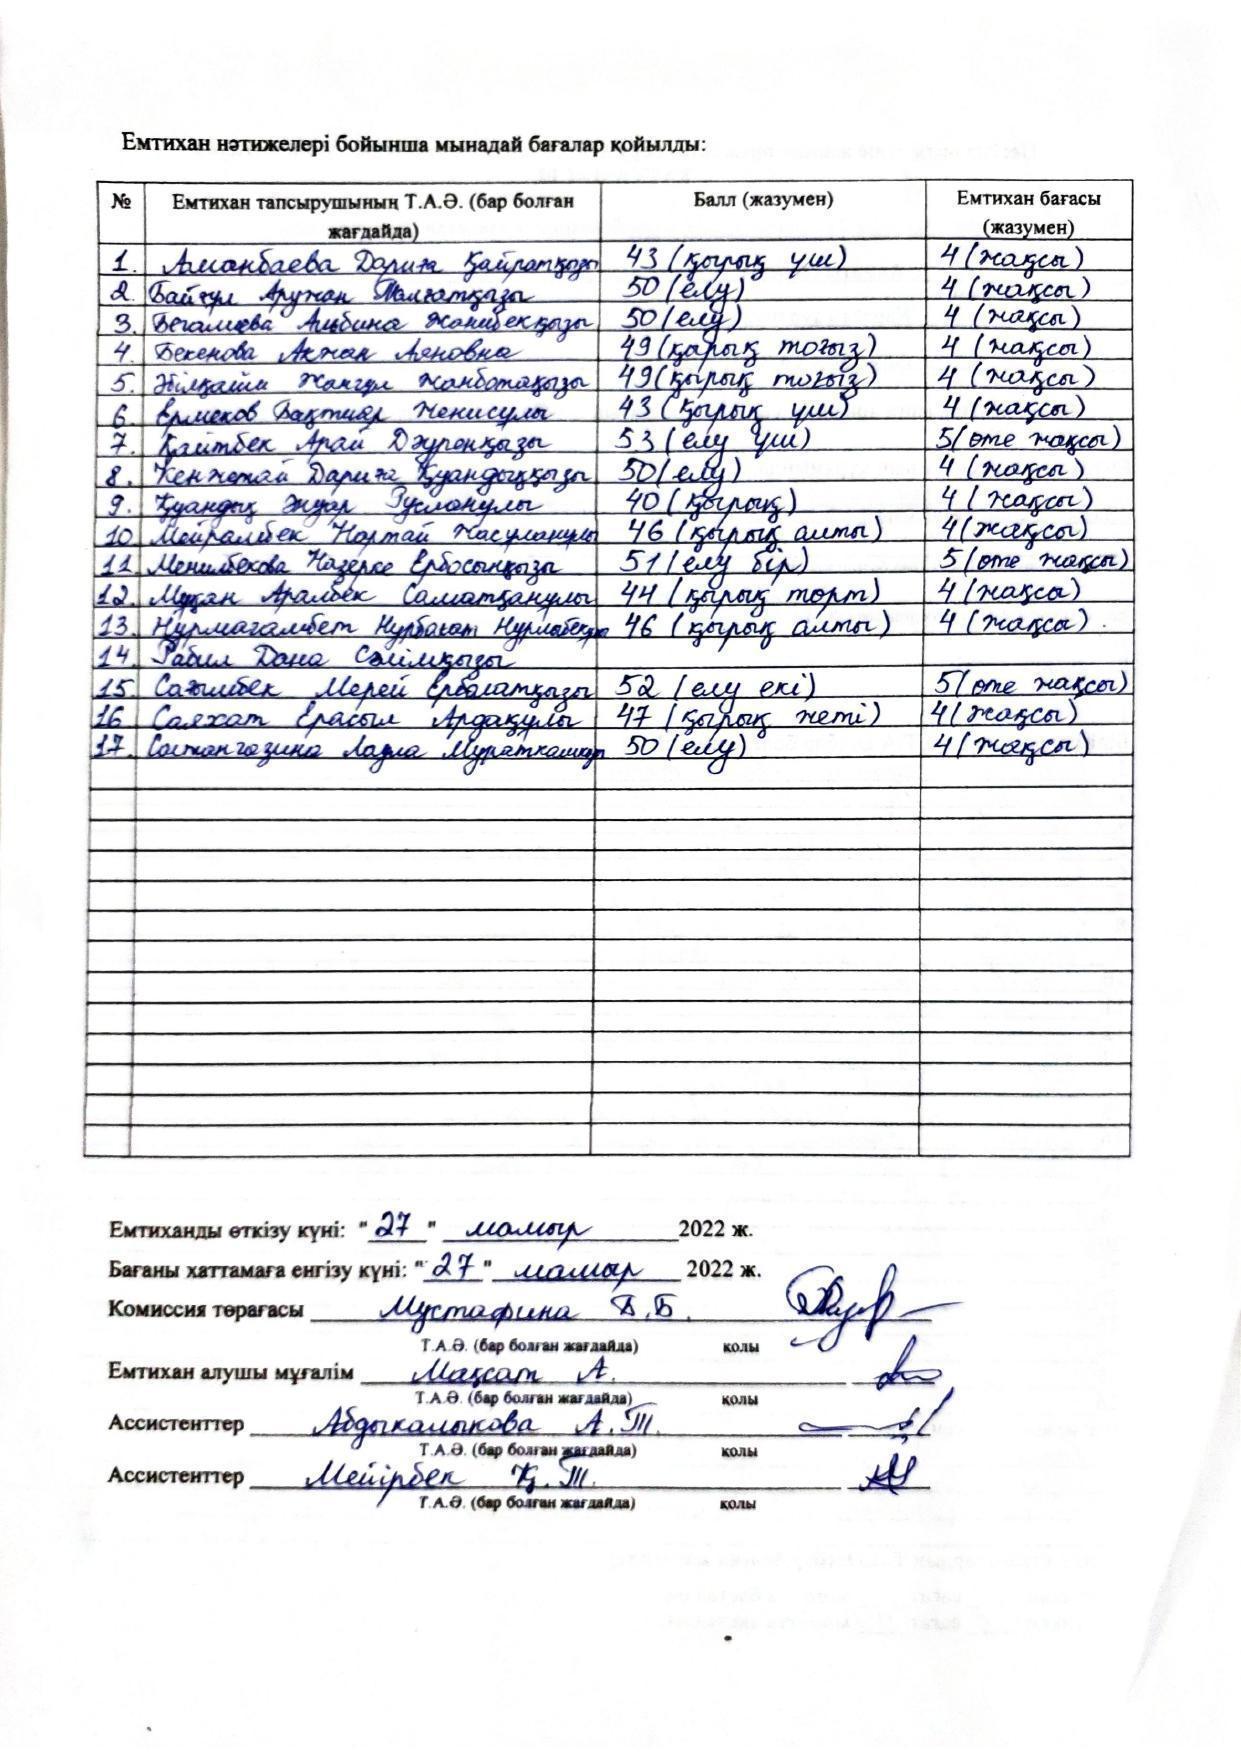 Емтихан нәтижелері бойынша мынадай бағалар қойылды:
№ Емтихан тапсырушының Т.А.Ә. (бар болған жағдайда) Балл (жазумен) Емтихан бағасы (жазумен)
1. Аманбаева Дариға Қайратқызы 43 (қырық үш) 4 (жақсы)
2. Байгүл Аружан Талғатқызы 50 (елу) 4 (жақсы)
3. Бегалиева Альбина Жанибекқызы 50 (елу) 4 (жақсы)
4. Бекенова Акжан Аяновна 49 (қарық тоғыз) 4 (жақсы)
5. Әбілқайш Жангүл Жанботақызы 49 (қырық тоғыз) 4 (жақсы)
6. Ермеков Бақтияр Женисұлы 43 (қырық үш) 4 (жақсы)
7. Қайтбек Арай Дәуренқызы 53 (елу үш) 5 (өте жақсы)
8. Кенжетай Дариға Қуандыққызы 50 (елу) 4 (жақсы)
9. Қуандық Әнуар Русланұлы 40 (қырық) 4 (жақсы)
10 Мейрамбек Нартай Жасұланұлы 46 (қырық алты) 4 (жақсы)
11 Менлибекова Назерке Ербосынқызы 51 (елу бір) 5 (өте жақсы)
12. Мұқан Аралбек Саматқанұлы 44 (қырық төрт) 4 (жақсы)
13 Нұрмағамбет Нұрбақыт 46 (қырық алты) 4 (жақсы).
14 Рабил Дана Сәлімқызы
15 Сағымбек Мерей Ерболатқызы 52 (елу екі) 5 (өте жақсы)
16 Саяхат Ерасыл Ардақұлы 47 (қырық жеті) 4 (жақсы)
17. Солтангазина Лаула 50 (елу) 4 (жақсы)
Емтиханды өткізу күні: "27" мамыр 2022 ж.
Бағаны хаттамаға енгізу күні: "27" мамыр 2022 ж.
Комиссия төрағасы Мустафина Б.Б.
Т.А.Ә. (бар болған жағдайда) қолы
Емтихан алушы мұғалім Мақсат А.
Т.А.Ә. (бар болған жағдайда) қолы
Ассистенттер Абдыкалыкова А.Т.
Т.А.Ә. (бар болған жағдайда) қолы
Ассистенттер Мейірбек Қ.Т.
Т.А.Ә. (бар болған жағдайда) қолы